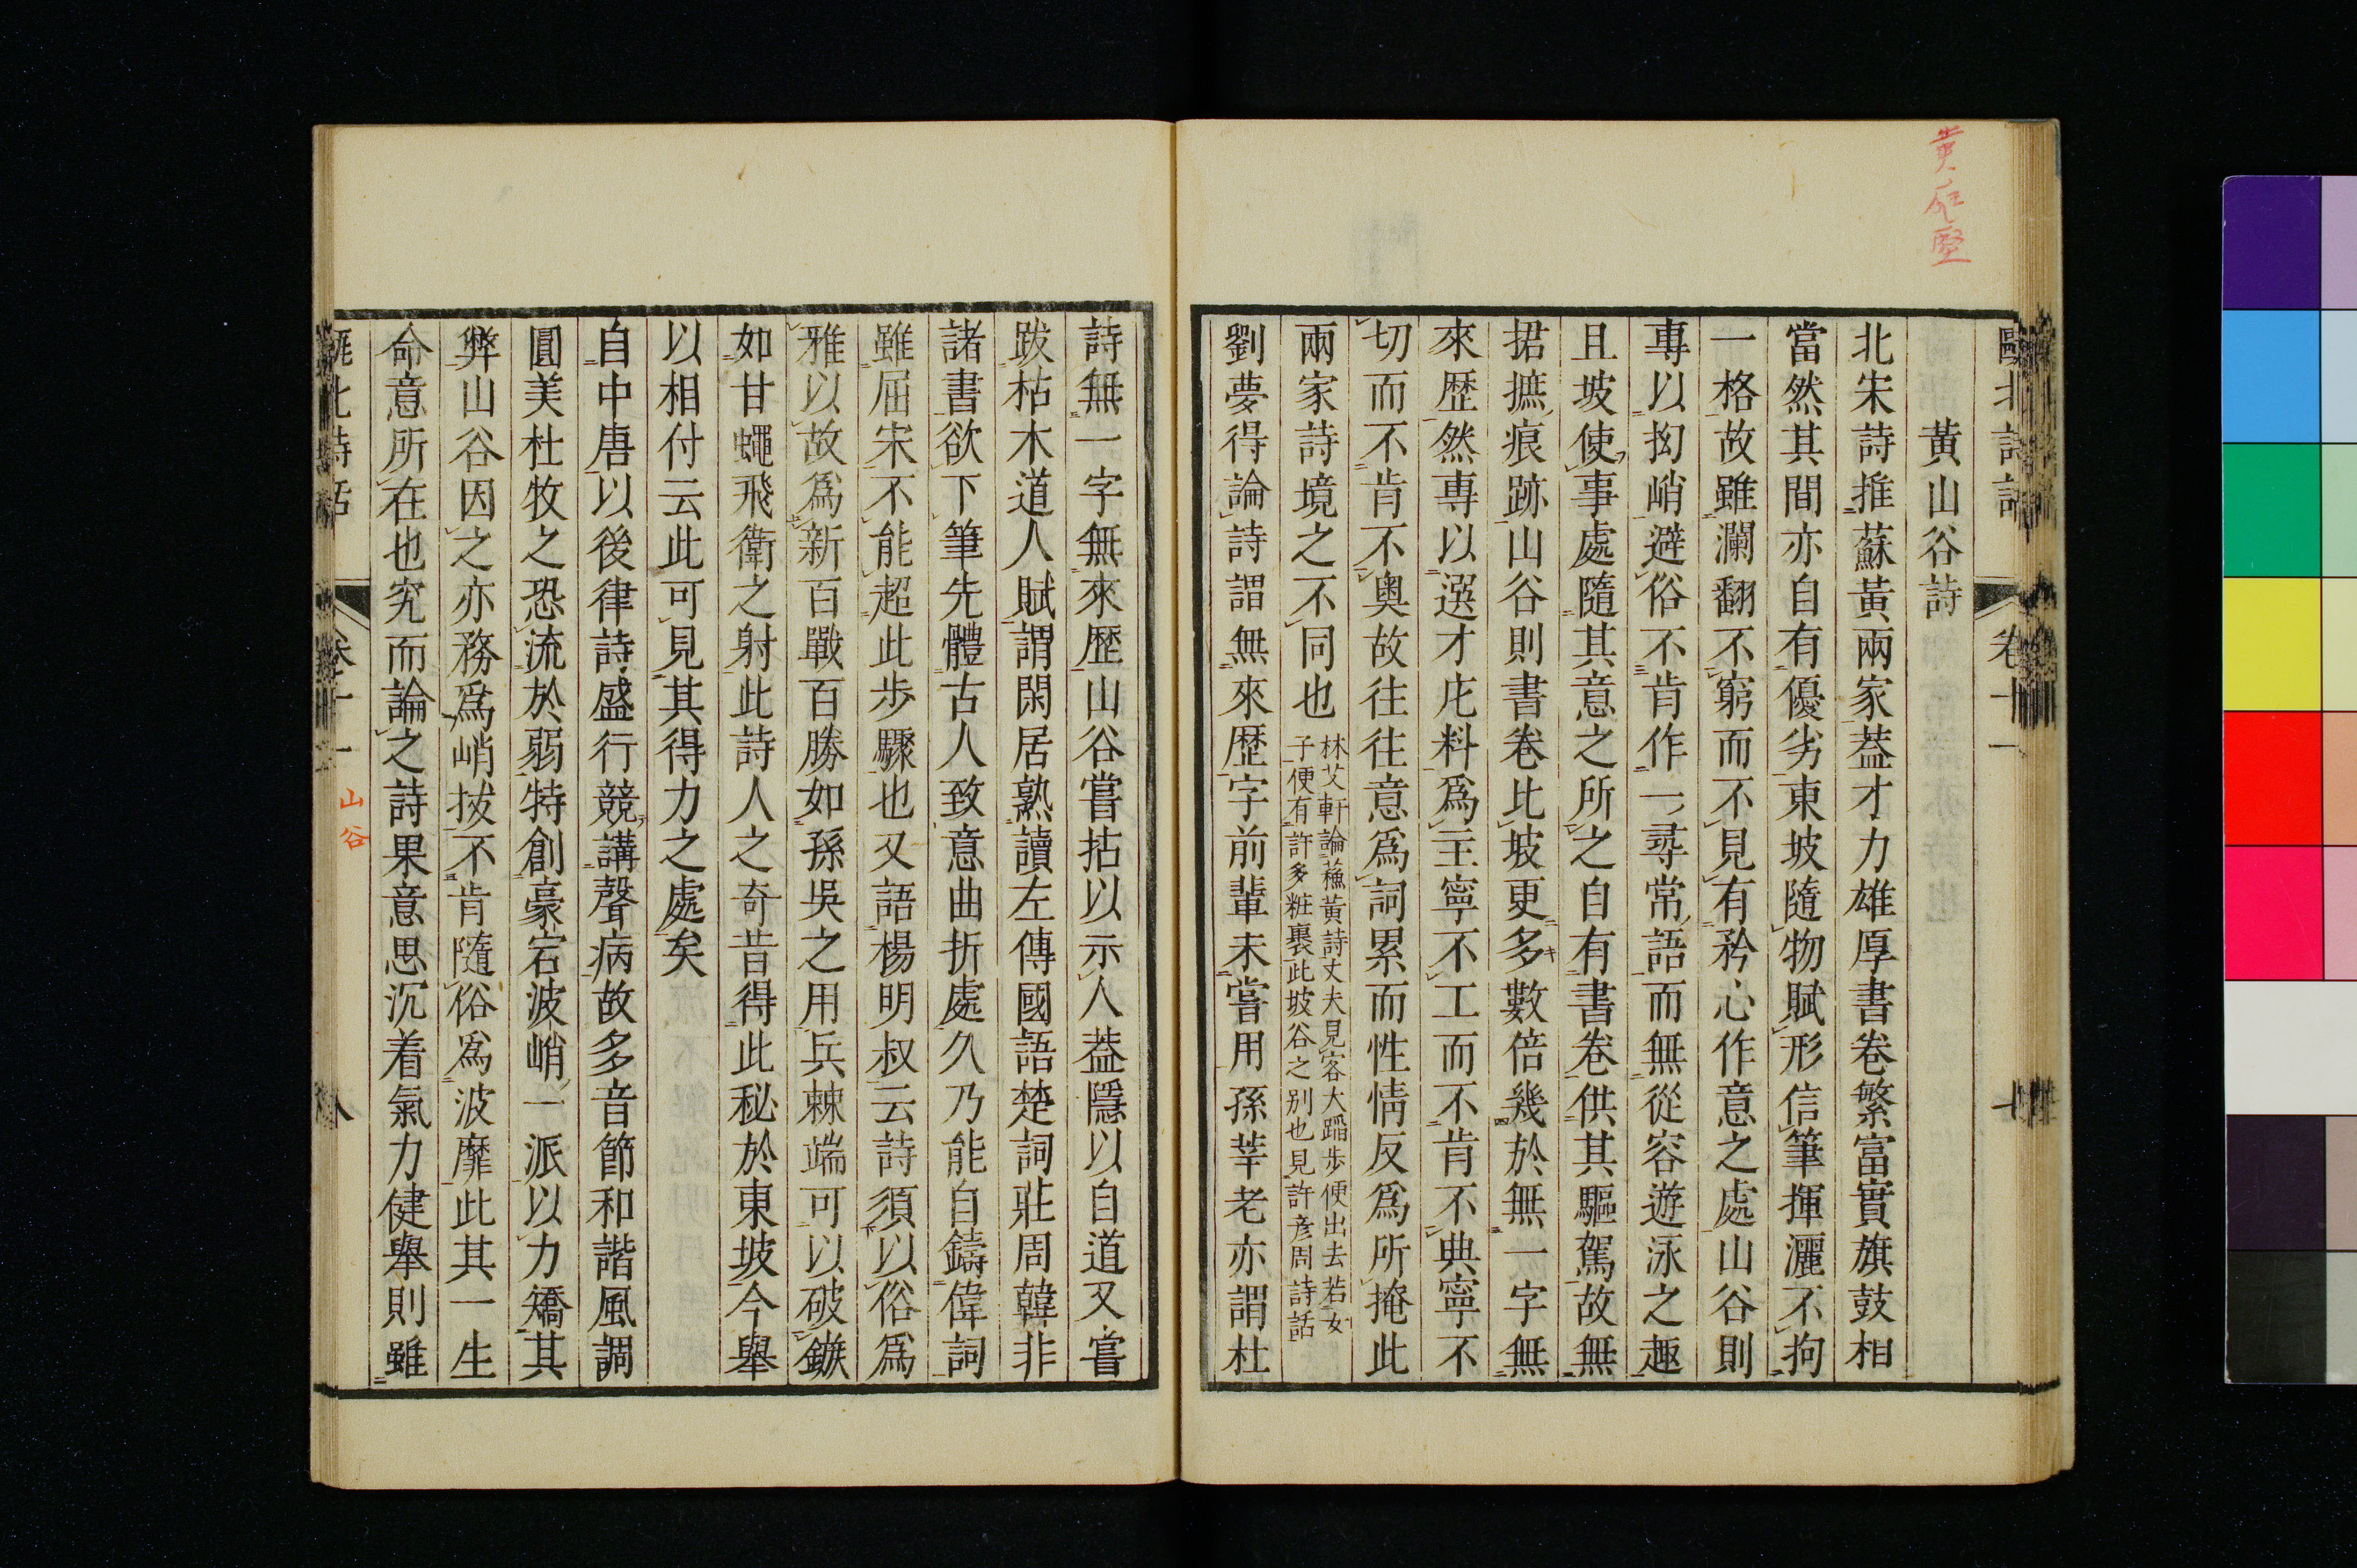 黃庭堅
甌北詩話
卷十一
黃山谷詩
北宋詩推蘇黃兩家葢才力雄厚書卷繁富實旗鼓相
當然其間亦自有優劣東坡隨物賦形信筆揮灑不拘
一格故雖瀾翻不窮而不見有矜心作意之處山谷則
專以拗峭避俗不肯作一尋常語而無從容遊泳之趣
且坡使事處隨其意之所之自有書卷供其驅駕故無
捃摭痕跡山谷則書卷比坡更多數倍幾於無一字無
來歷然專以選才庀料爲主寧不工而不肯不典寧不
切而不肯不奥故往往意爲詞累而性情反爲所掩此
兩家詩境之不同也
林艾軒論蘓黃詩丈夫見客大蹈步便出去若女
子便有許多粧裹此坡谷之别也見許彥周詩話
劉夢得論詩謂無來歴字前輩未嘗用孫莘老亦謂杜
詩無一字無來歷山谷嘗拈以示人葢隱以自道又嘗
跋枯木道人賦謂閑居熟讀左傳國語楚詞莊周韓非
諸書欲下筆先體古人致意曲折處久乃能自鑄偉詞
雖屈宋不能超此步驟也又語楊明叔云詩須以俗爲
雅以故爲新百戰百勝如孫吳之用兵棘端可以破鏃
如甘蠅飛衛之射此詩人之奇昔得此秘於東坡今舉
以相付云此可見其得力之處矣
自中唐以後律詩盛行競講聲病故多音節和諧風調
圓美杜牧之恐流於弱特創豪宕波峭一派以力矯其
弊山谷因之亦務爲峭拔不肯隨俗爲波靡此其一生
命意所在也究而論之詩果意思沉着氣力健舉則雖
甌北詩話
卷十一
山谷
八